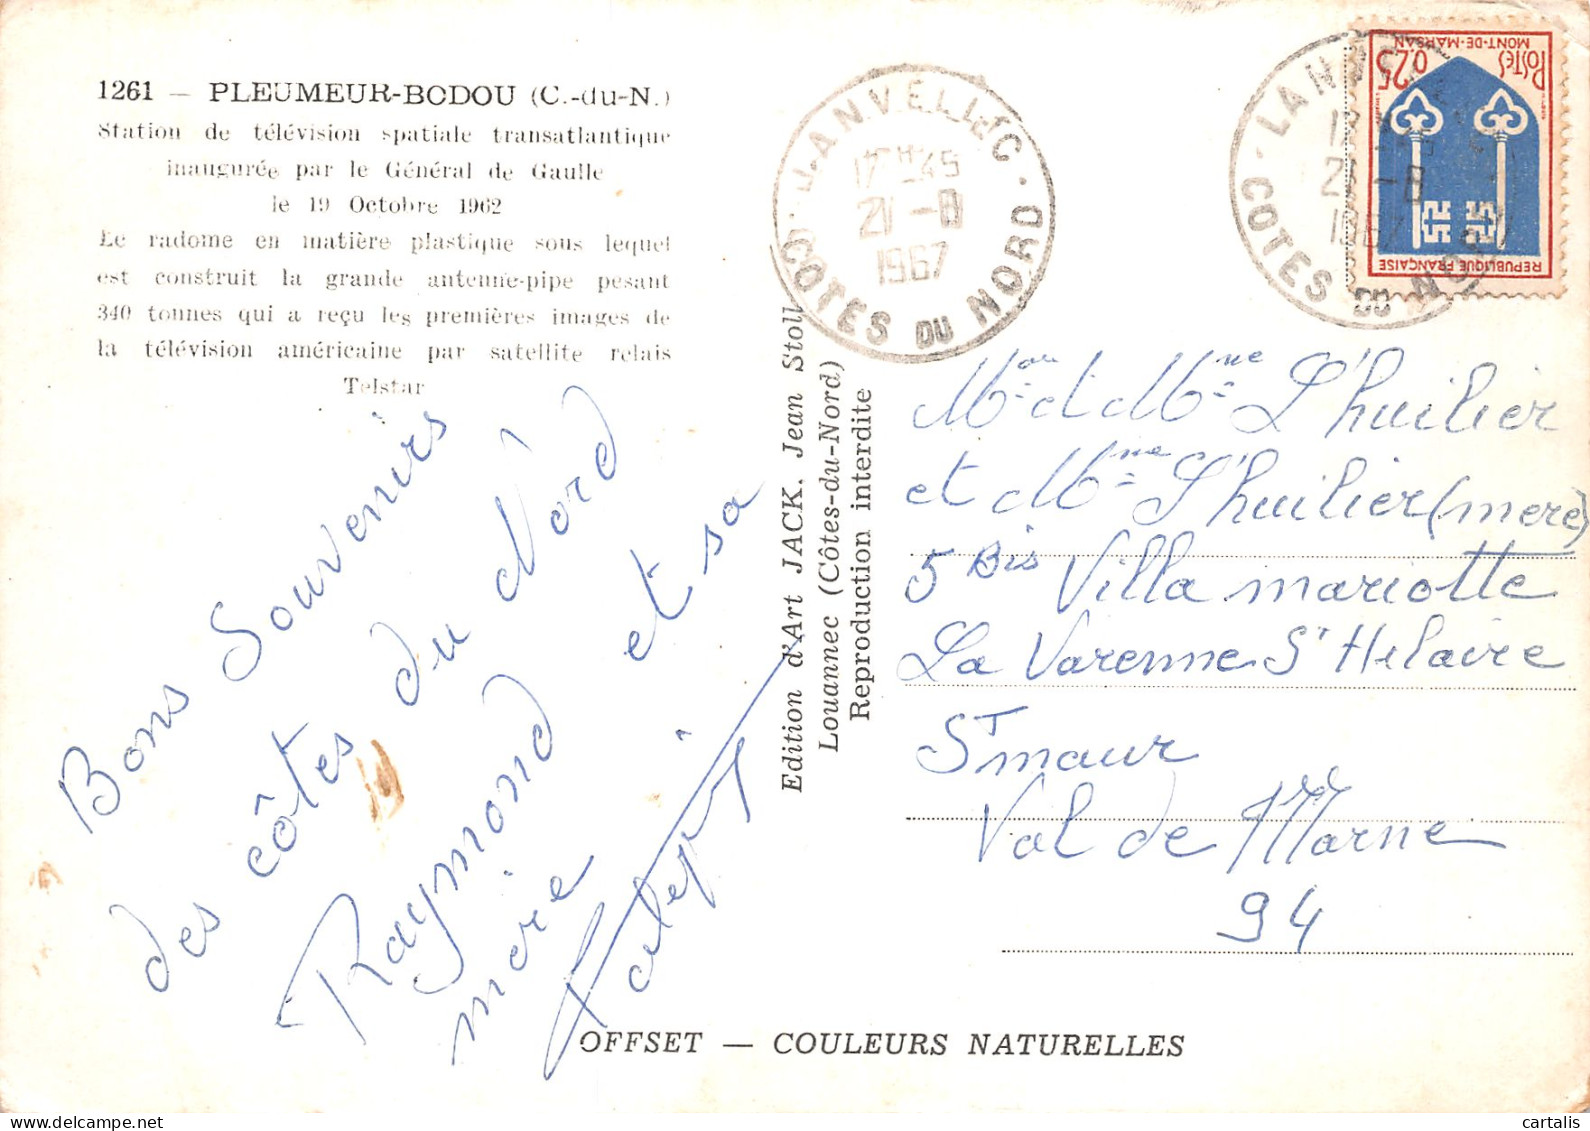 1261 — PLEUMEUR-BODOU (C.-du-N.)
Station de télévision spatiale transatlantique
inaugurée par le Général de Gaulle
le 19 Octobre 1962
Le radome en matière plastique sous lequel
est construit la grande antenne-pipe pesant
340 tonnes qui a reçu les premières images de
la télévision américaine par satellite relais
Telstar
Bons Souvenirs
des côtes du Nord
Raymond et sa
mère
Edition d'Art JACK, Jean Stoll
Louannec (Côtes-du-Nord)
Reproduction interdite
LANVELLEC
17H45
21-8
1967
COTES DU NORD
LANVELLEC
21-8
1967
COTES DU NORD
REPUBLIQUE FRANÇAISE
0,25 POSTES
MONT-DE-MARSAN
et Mme L'huilier
et Mme L'huilier (mere)
5 Bis Villa mariotte
La Varenne St Hilaire
St maur
Val de Marne
94
OFFSET — COULEURS NATURELLES
delcampe.net
cartalis